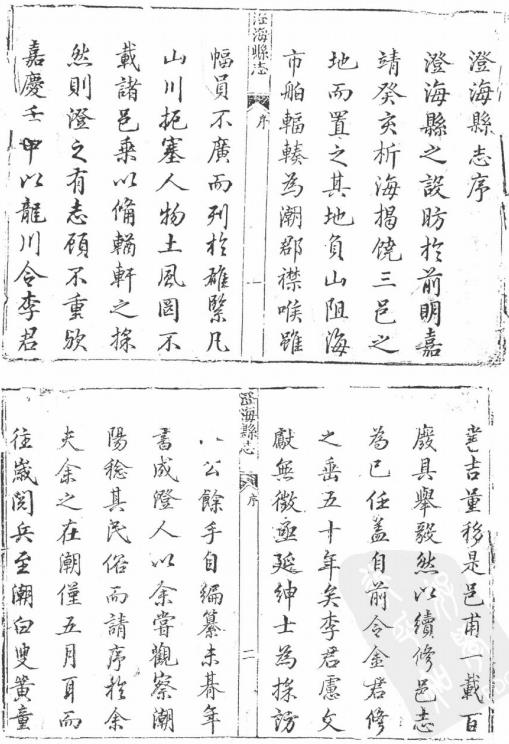 澄海縣志序
澄海縣之設昉於前明嘉
靖癸亥析海揭饒三邑之
地而置之其地負山阻海
市舶輻輳為潮郡襟喉雖
澄海縣志
序
一
幅員不廣而列於雄緊凡
山川扼塞人物土風罔不
載諸邑乘以備輶軒之採
然則澄之有志顧不重歟
嘉慶壬申以龍川令李君
書吉量移是邑甫一載百
廢具舉毅然以續修邑志
為已任蓋自前令金君修
之垂五十年矣李君慮文
獻無徵亟延紳士為採訪
澄海縣志
序
二
以公餘手自編纂未朞年
書成澄人以余嘗觀察潮
陽稔其民俗而請序於余
夫余之在潮僅五月耳而
往嵗閱兵至潮白叟黃童